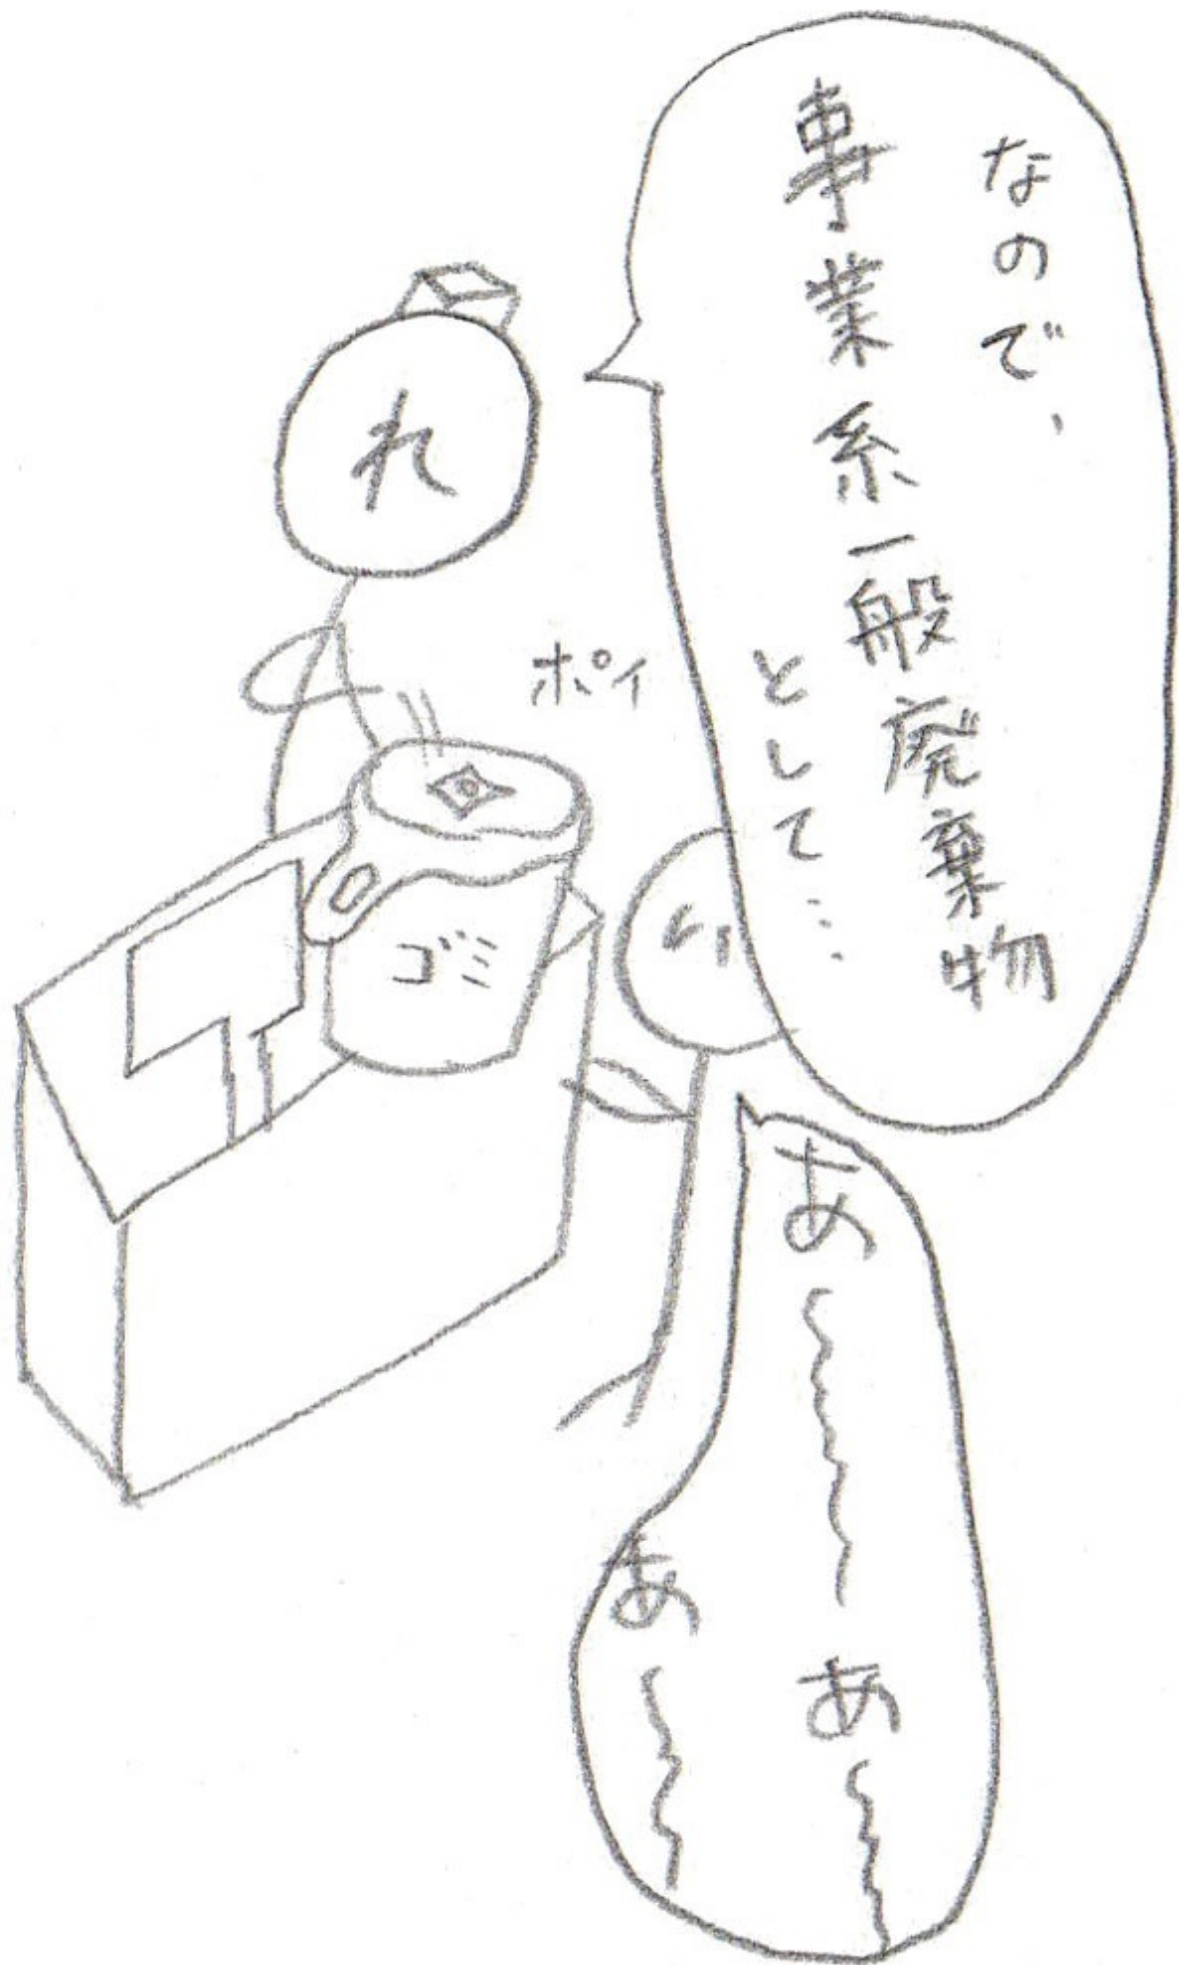 なので、
事業系一般廃棄物
として…
れ
ポイ
ゴミ
あ～～～あ～～
あ～～